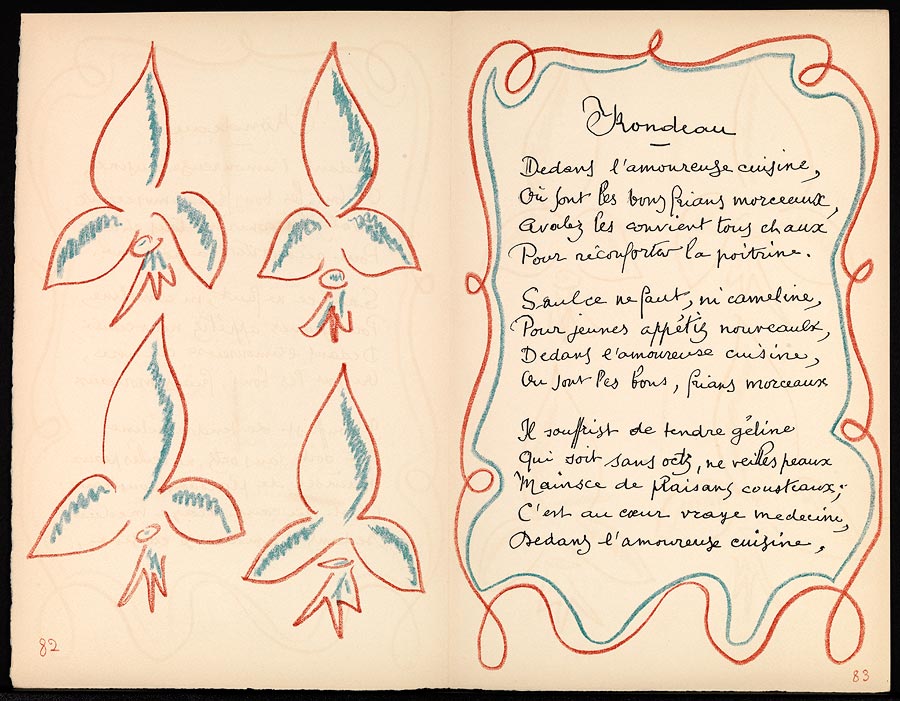 82
Rondeau
Dedans l'amoureuse cuisine,
Où sont les bons frians morceaux,
avalez les convient tous chaux
Pour réconforter la poitrine.
Saulce ne faut, ni cameline,
Pour jeunes appétiz nouveaulx,
Dedans l'amoureuse cuisine,
Ou sont les bons, frians morceaux
Il souffrist de tendre géline
Qui soit sans octz, ne veilles peaux
Mainsce de plaisans cousteaux;
C'est au cœur vraye medecine,
Dedans l'amoureuse cuisine,
83